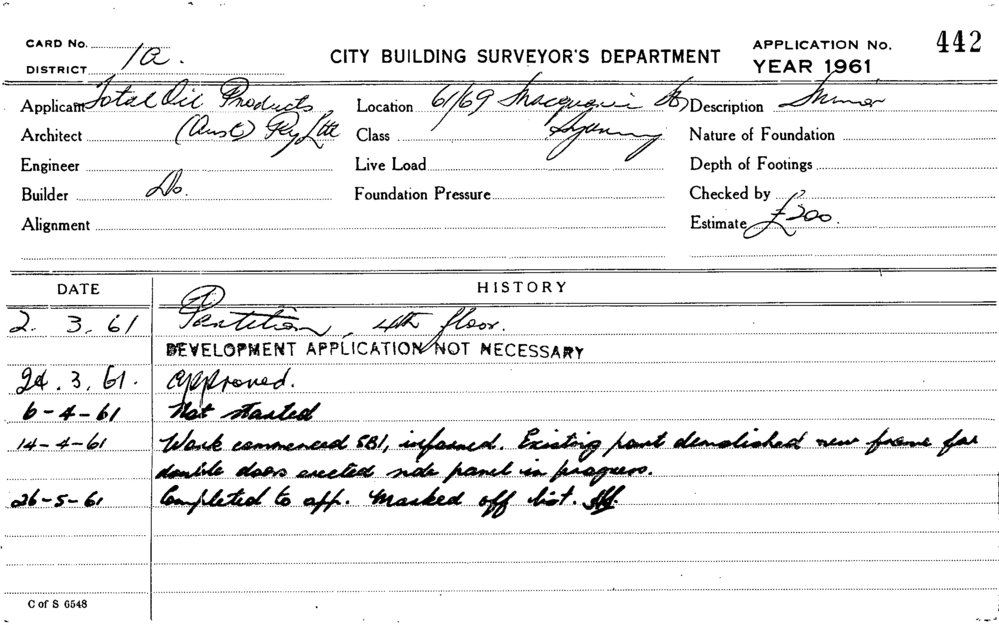 CARD No.
DISTRICT 1a.
CITY BUILDING SURVEYOR'S DEPARTMENT
APPLICATION No. 442
YEAR 1961
Applicant Total Oil Products
Location 61/69 Macquarie St
Description Minor
Architect (Aust) Pty Ltd
Class Sydney
Nature of Foundation
Engineer
Live Load
Depth of Footings
Builder Do.
Foundation Pressure
Checked by
Alignment
Estimate £200.
DATE HISTORY
2. 3. 61 Partition, 4th floor.
DEVELOPMENT APPLICATION NOT NECESSARY
24. 3. 61. Approved.
6-4-61 Not started
14-4-61 Work commenced SBI, informed. Existing part demolished new frame for
double doors erected side panel in progress.
26-5-61 Completed to app. Marked off list.
C of S 6548